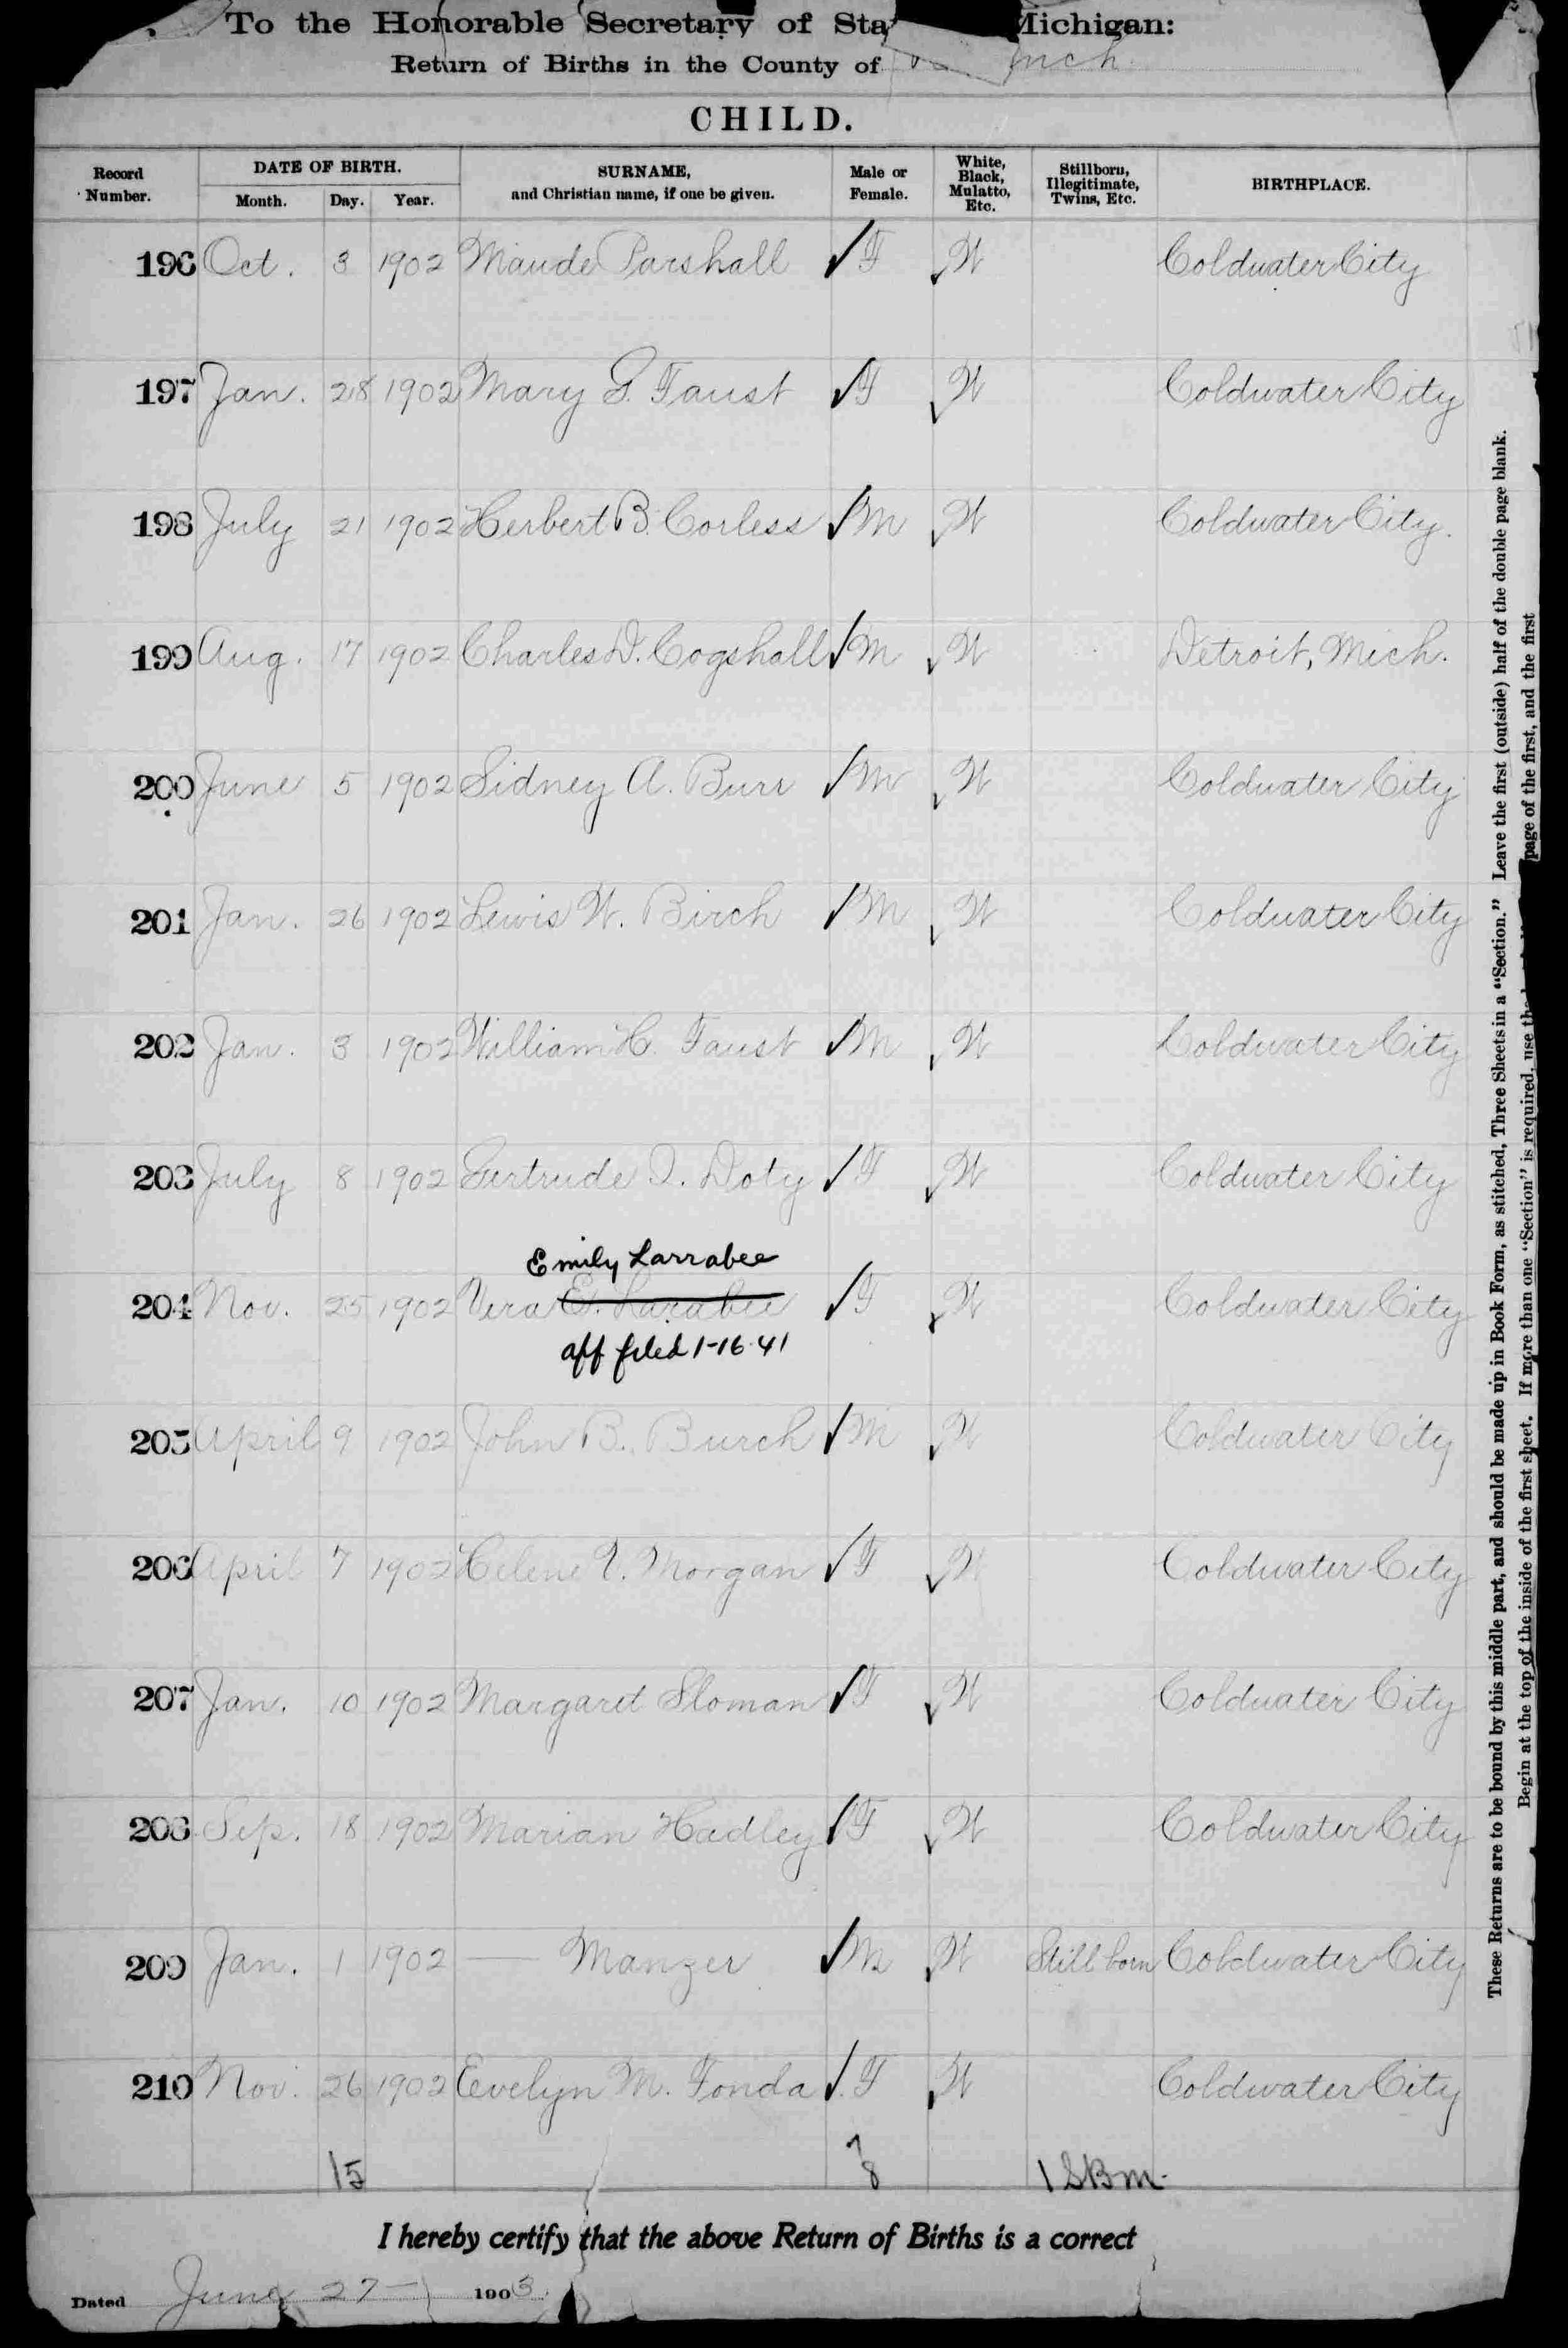 To the Honorable Secretary of Sta Michigan:
Return of Births in the County of nch
CHILD.
Record Number. DATE OF BIRTH. Month. Day. Year. SURNAME, and Christian name, if one be given. Male or Female. White, Black, Mulatto, Etc. Stillborn, Illegitimate, Twins, Etc. BIRTHPLACE.
196 Oct. 3 1902 Maude Parshall F W Coldwater City
197 Jan. 28 1902 Mary G. Faust F W Coldwater City
198 July 21 1902 Herbert B. Corless M W Coldwater City.
199 Aug. 17 1902 Charles D. Cogshall M W Detroit, Mich.
200 June 5 1902 Sidney A. Burr M W Coldwater City
201 Jan. 26 1902 Lewis W. Birch M W Coldwater City
202 Jan. 3 1902 William H. Faust M W Coldwater City
203 July 8 1902 Gertrude I. Doty F W Coldwater City
Emily Larrabee
204 Nov. 25 1902 Vera E. Larabee F W Coldwater City
aff filed 1-16-41
205 April 9 1902 John B. Burch M W Coldwater City
206 April 7 1902 Helene V. Morgan F W Coldwater City
207 Jan. 10 1902 Margaret Sloman F W Coldwater City
208 Sep. 18 1902 Marian Hadley F W Coldwater City
209 Jan. 1 1902 — Manzer M W Still born Coldwater City
210 Nov. 26 1902 Evelyn M. Fonda F W Coldwater City
15 7 8 1 SBM.
I hereby certify that the above Return of Births is a correct
Dated June 27 1903.
These Returns are to be bound by this middle part, and should be made up in Book Form, as stitched, Three Sheets in a "Section." Leave the first (outside) half of the double page blank.
Begin at the top of the inside of the first sheet. If more than one "Section" is required, use the page of the first, and the first